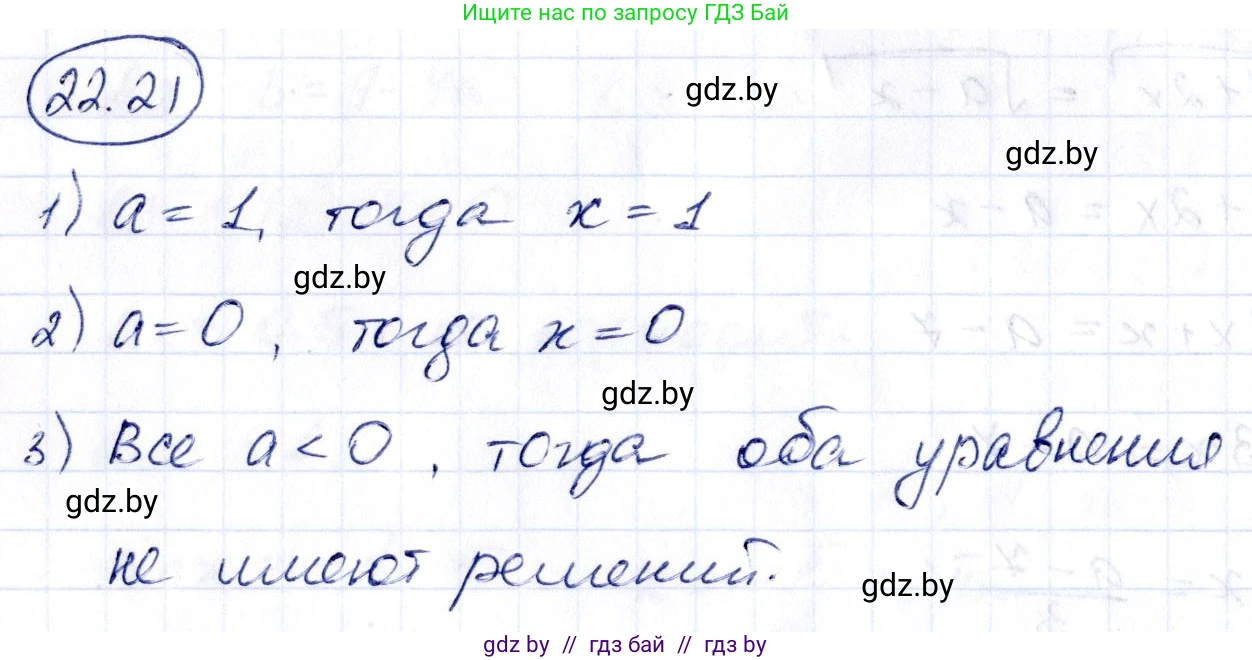 Ищите нас по запросу ГДЗ Бай
22.21
gdz.by
gdz.by
1) a = 1, тогда x = 1
gdz.by
2) a = 0, тогда x = 0
gdz.by
3) Все a < 0, тогда оба уравнения
gdz.by
не имеют решений.
gdz.by
gdz by // гдз бай // гдз by